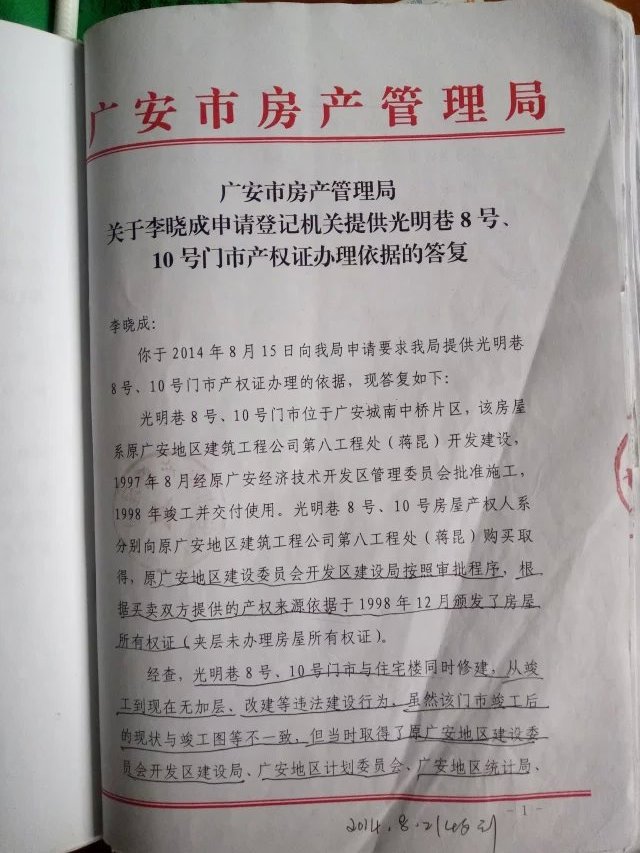 广安市房产管理局
广安市房产管理局
关于李晓成申请登记机关提供光明巷 8 号、
10 号门市产权证办理依据的答复
李晓成：
你于 2014 年 8 月 15 日向我局申请要求我局提供光明巷
8 号、10 号门市产权证办理的依据，现答复如下：
光明巷 8 号、10 号门市位于广安城南中桥片区，该房屋
系原广安地区建筑工程公司第八工程处（蒋昆）开发建设，
1997 年 8 月经原广安经济技术开发区管理委员会批准施工，
1998 年竣工并交付使用。光明巷 8 号、10 号房屋产权人系
分别向原广安地区建筑工程公司第八工程处（蒋昆）购买取
得，原广安地区建设委员会开发区建设局按照审批程序，根
据买卖双方提供的产权来源依据于 1998 年 12 月颁发了房屋
所有权证（夹层未办理房屋所有权证）。
经查，光明巷 8 号、10 号门市与住宅楼同时修建，从竣
工到现在无加层、改建等违法建设行为，虽然该门市竣工后
的现状与竣工图等不一致，但当时取得了原广安地区建设委
员会开发区建设局、广安地区计划委员会、广安地区统计局、
- 1 -
2014.8.21